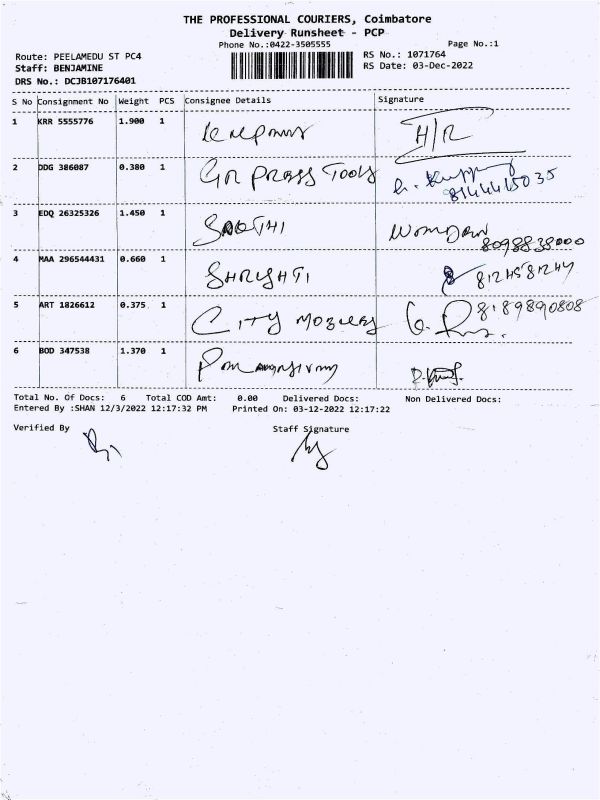 THE PROFESSIONAL COURIERS, Coimbatore
Delivery Runsheet - PCP
Phone No.:0422-3505555
Page No.:1
Route: PEELAMEDU ST PC4
RS No.: 1071764
Staff: BENJAMINE
RS Date: 03-Dec-2022
DRS No.: DCJB107176401
S No Consignment No Weight PCS Consignee Details Signature
1 KRR 5555776 1.900 1 H/R
2 DDG 386087 0.380 1 GR PRESS TOOLS
8144415035
3 EDQ 26325326 1.450 1 SAKTHI
8098838000
4 MAA 296544431 0.660 1 SHRISHTI 8124581244
5 ART 1826612 0.375 1 CITY MOBILES 8189890808
6 BOD 347538 1.370 1
Total No. Of Docs: 6 Total COD Amt: 0.00 Delivered Docs: Non Delivered Docs:
Entered By :SHAN 12/3/2022 12:17:32 PM Printed On: 03-12-2022 12:17:22
Verified By Staff Signature